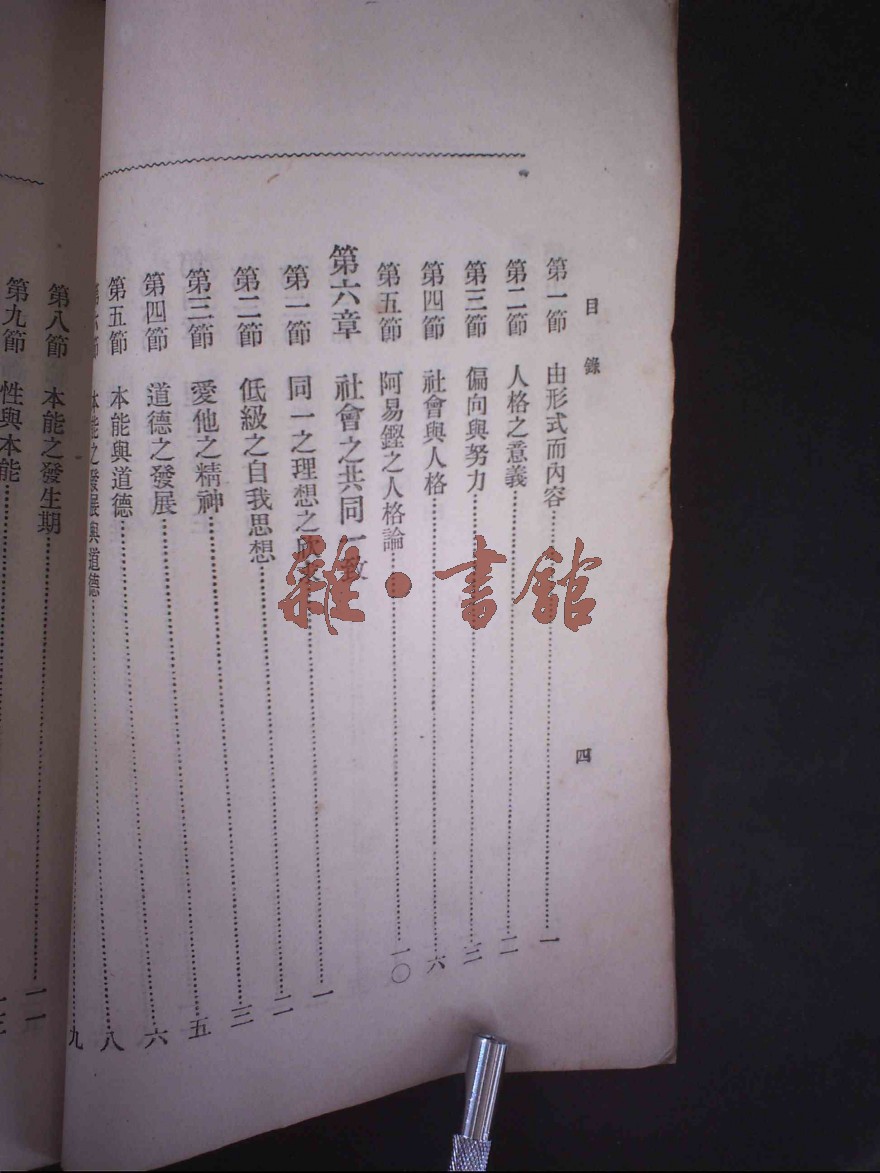 目錄
四
第一節 由形式而內容……一
第二節 人格之意義……二
第三節 偏向與努力……三
第四節 社會與人格……六
第五節 阿易鏗之人格論……一〇
第六章 社會之共同一致
第一節 同一之理想之……一
第二節 低級之自我思想……二
第三節 愛他之精神……三
第四節 道德之發展……五
第五節 本能與道德……六
第六節 本能之發展與道德……八
九
第八節 本能之發生期……一一
第九節 性與本能……
雜·書館